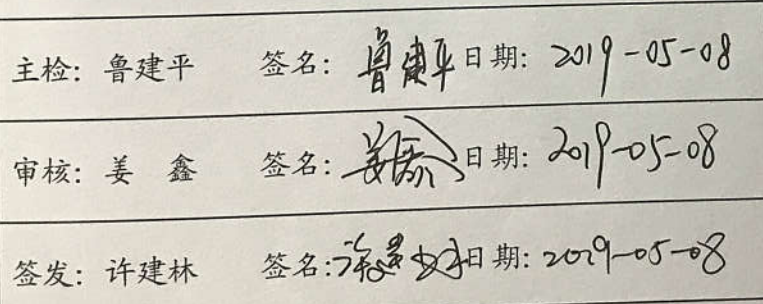 主检: 鲁建平 签名: 鲁建平 日期: 2019-05-08
审核: 姜 鑫 签名: 姜鑫 日期: 2019-05-08
签发: 许建林 签名: 许建林 日期: 2019-05-08